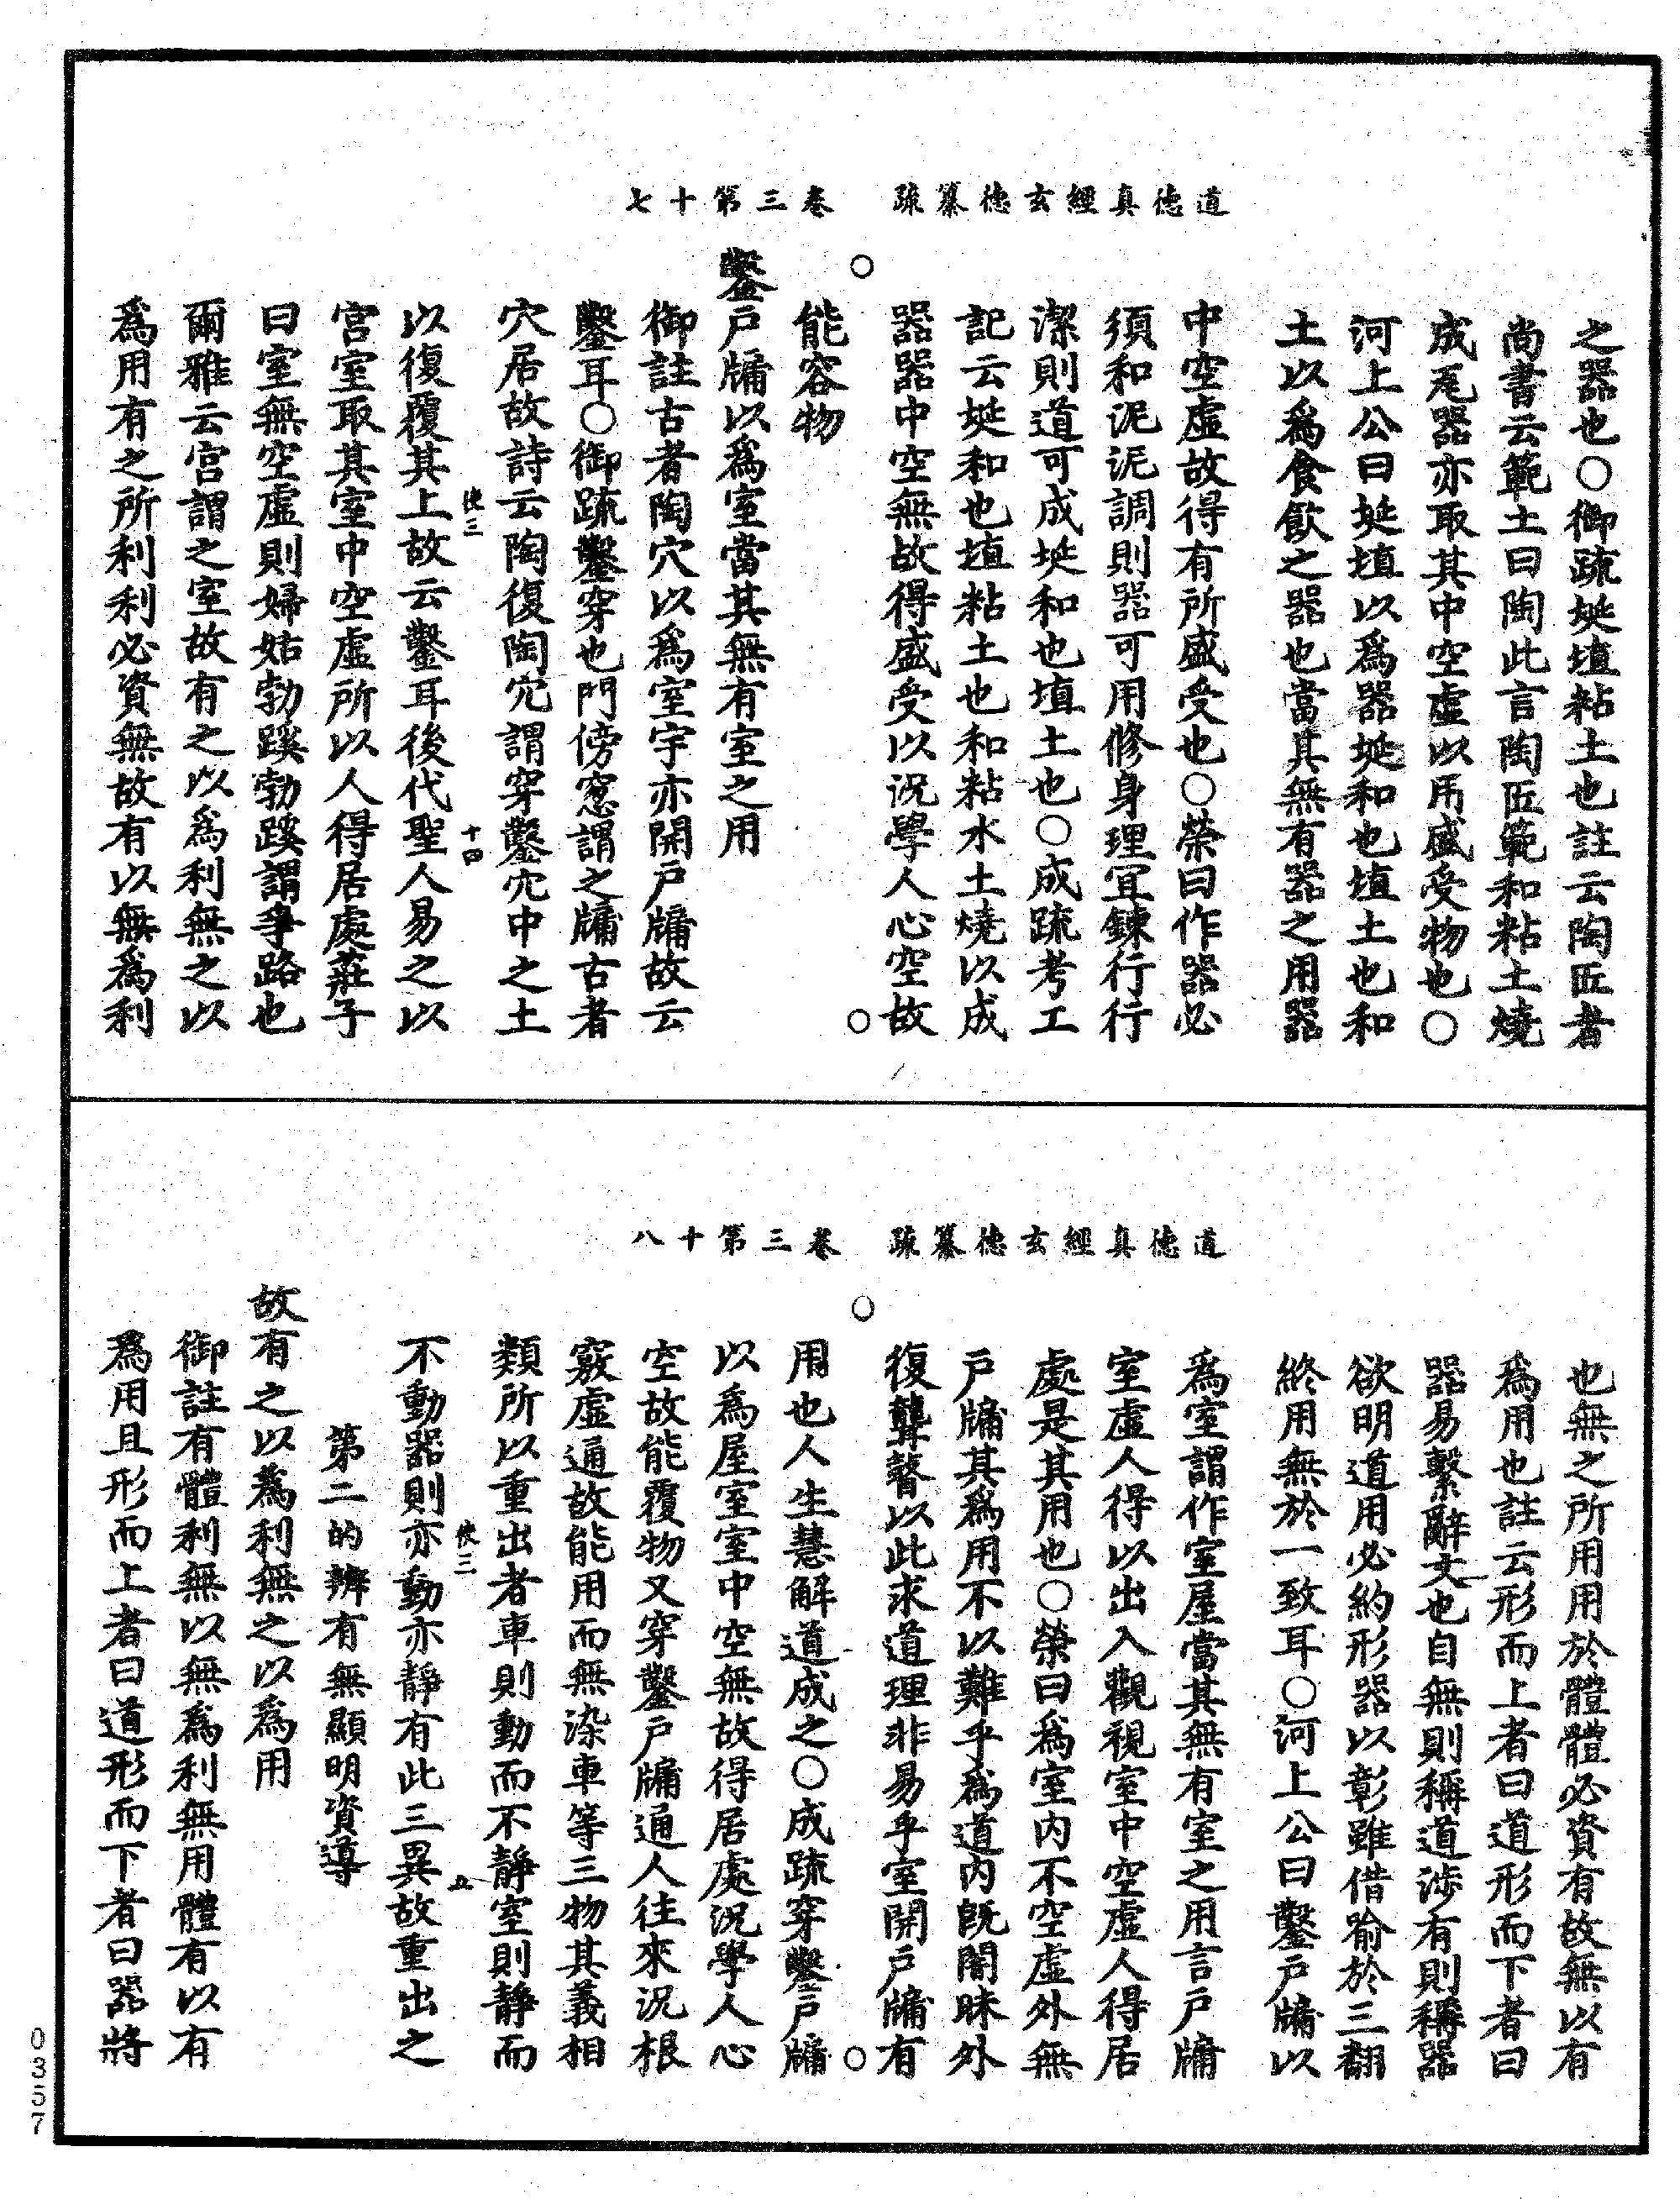 道德真經玄德纂疏　卷三第十七
之器也○御疏埏埴粘土也註云陶匠者
尚書云範土曰陶此言陶匠範和粘土燒
成瓦器亦取其中空虛以用盛受物也○
河上公曰埏埴以爲器埏和也埴土也和
土以爲食飲之器也當其無有器之用器
中空虛故得有所盛受也○榮曰作器必
須和泥泥調則器可用脩身理宜鍊行行
潔則道可成埏和也埴土也○成疏考工
記云埏和也埴粘土也和粘水土燒以成
器器中空無故得盛受以況學人心空故
能容物
鑿戶牖以爲室當其無有室之用
御註古者陶穴以爲室宇亦開戶牖故云
鑿耳○御疏鑿穿也門傍窻謂之牖古者
穴居故詩云陶復陶宂謂穿鑿宂中之土
俠三　十四
以復覆其上故云鑿耳後代聖人易之以
宮室取其室中空虛所以人得居處莊子
曰室無空虛則婦姑勃蹊勃蹊謂爭路也
爾雅云宮謂之室故有之以爲利無之以
爲用有之所利利必資無故有以無爲利
道德真經玄德纂疏　卷三第十八
也無之所用用於體體必資有故無以有
爲用也註云形而上者曰道形而下者曰
器易繫辭文也自無則稱道涉有則稱器
欲明道用必約形器以彰雖借喻於三翻
終用無於一致耳○河上公曰鑿戶牖以
爲室謂作室屋當其無有室之用言戶牖
室虛人得以出入觀視室中空虛人得居
處是其用也○榮曰爲室內不空虛外無
戶牖其爲用不以難乎爲道內旣闇昧外
復聾瞽以此求道理非易乎室開戶牖有
用也人生慧解道成之○成疏穿鑿戶牖
以爲屋室室中空無故得居處況學人心
空故能覆物又穿鑿戶牖通人往來況根
竅虛通故能用而無染車等三物其義相
類所以重出者車則動而不靜室則靜而
俠三　五
不動器則亦動亦靜有此三異故重出之
第二的辨有無顯明資導
故有之以爲利無之以爲用
御註有體利無以無爲利無用體有以有
爲用且形而上者曰道形而下者曰器將
0357